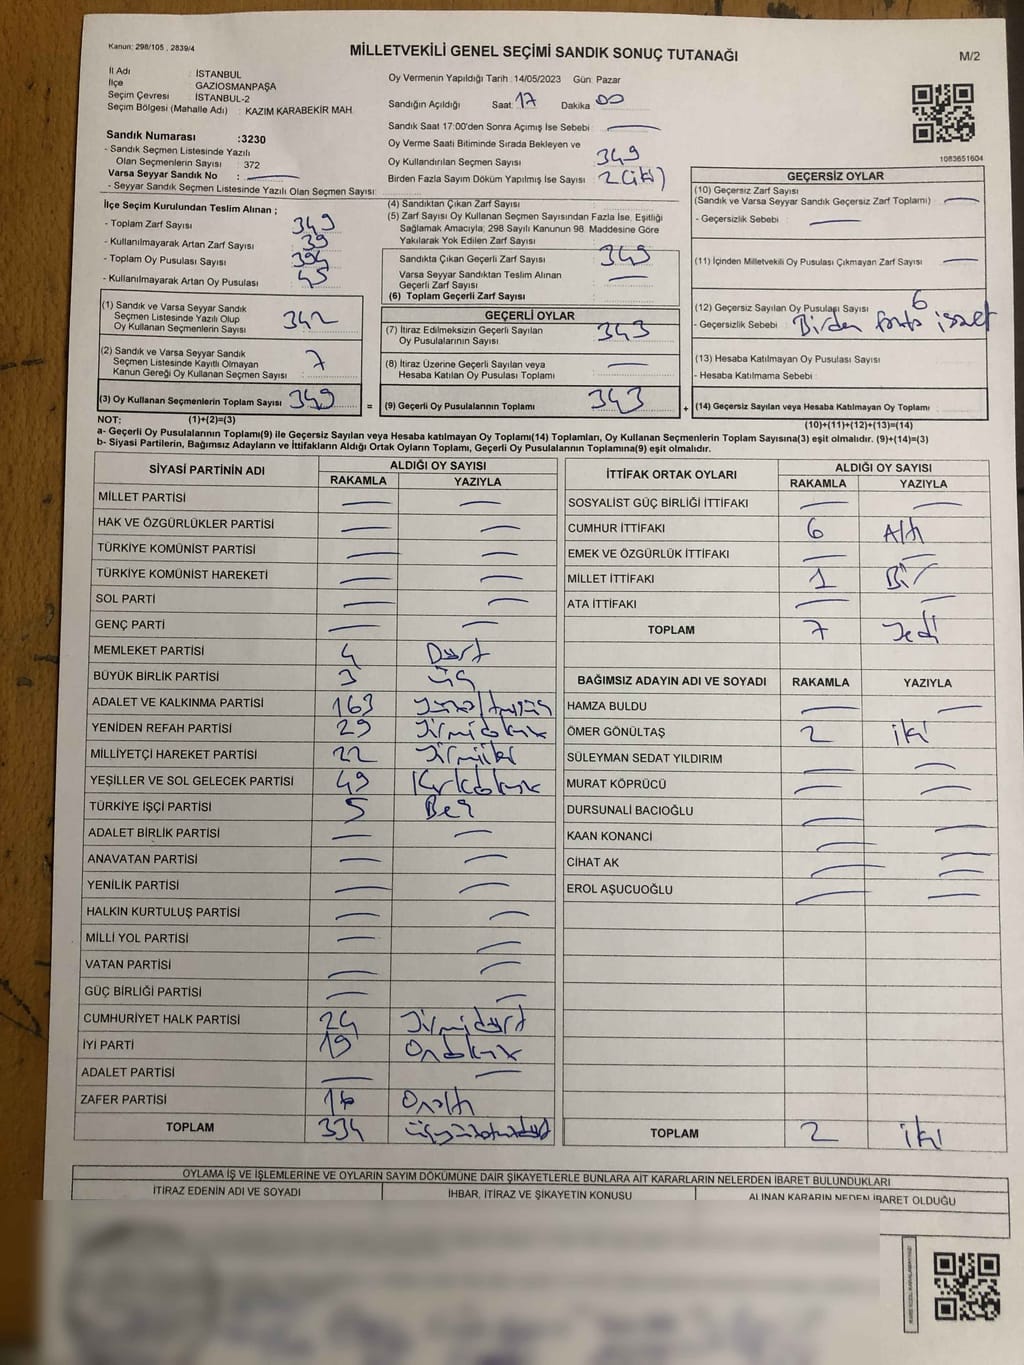 Kanun: 298/105 , 2839/4
MİLLETVEKİLİ GENEL SEÇİMİ SANDIK SONUÇ TUTANAĞI
M/2
İl Adı : İSTANBUL
İlçe : GAZİOSMANPAŞA
Seçim Çevresi : İSTANBUL-2
Seçim Bölgesi (Mahalle Adı) : KAZIM KARABEKİR MAH.
Oy Vermenin Yapıldığı Tarih : 14/05/2023 Gün: Pazar
Sandığın Açıldığı Saat: 17 Dakika 00
Sandık Saat 17:00'den Sonra Açımış İse Sebebi : —
Oy Verme Saati Bitiminde Sırada Bekleyen ve
Oy Kullandırılan Seçmen Sayısı 349
Birden Fazla Sayım Döküm Yapılmış İse Sayısı : 2 (iki)
1083651604
Sandık Numarası :3230
- Sandık Seçmen Listesinde Yazılı
Olan Seçmenlerin Sayısı : 372
Varsa Seyyar Sandık No : —
- Seyyar Sandık Seçmen Listesinde Yazılı Olan Seçmen Sayısı:
İlçe Seçim Kurulundan Teslim Alınan ;
- Toplam Zarf Sayısı : 349
- Kullanılmayarak Artan Zarf Sayısı : 39
- Toplam Oy Pusulası Sayısı : 394
- Kullanılmayarak Artan Oy Pusulası : 45
(1) Sandık ve Varsa Seyyar Sandık
Seçmen Listesinde Yazılı Olup
Oy Kullanan Seçmenlerin Sayısı : 342
(2) Sandık ve Varsa Seyyar Sandık
Seçmen Listesinde Kayıtlı Olmayan
Kanun Gereği Oy Kullanan Seçmen Sayısı : 7
(3) Oy Kullanan Seçmenlerin Toplam Sayısı : 349
NOT: (1)+(2)=(3)
(4) Sandıktan Çıkan Zarf Sayısı
(5) Zarf Sayısı Oy Kullanan Seçmen Sayısından Fazla İse, Eşitliği
Sağlamak Amacıyla; 298 Sayılı Kanunun 98. Maddesine Göre
Yakılarak Yok Edilen Zarf Sayısı
Sandıkta Çıkan Geçerli Zarf Sayısı : 349
Varsa Seyyar Sandıktan Teslim Alınan
Geçerli Zarf Sayısı : —
(6) Toplam Geçerli Zarf Sayısı
GEÇERLİ OYLAR
(7) İtiraz Edilmeksizin Geçerli Sayılan
Oy Pusulalarının Sayısı : 343
(8) İtiraz Üzerine Geçerli Sayılan veya
Hesaba Katılan Oy Pusulası Toplamı : —
= (9) Geçerli Oy Pusulalarının Toplamı : 343
GEÇERSİZ OYLAR
(10) Geçersiz Zarf Sayısı
(Sandık ve Varsa Seyyar Sandık Geçersiz Zarf Toplamı) : —
- Geçersizlik Sebebi : —
(11) İçinden Milletvekili Oy Pusulası Çıkmayan Zarf Sayısı : —
(12) Geçersiz Sayılan Oy Pusulası Sayısı : 6
- Geçersizlik Sebebi : Birden fazla işaret
(13) Hesaba Katılmayan Oy Pusulası Sayısı :
- Hesaba Katılmama Sebebi :
+ (14) Geçersiz Sayılan veya Hesaba Katılmayan Oy Toplamı :
(10)+(11)+(12)+(13)=(14)
a- Geçerli Oy Pusulalarının Toplamı(9) ile Geçersiz Sayılan veya Hesaba katılmayan Oy Toplamı(14) Toplamları, Oy Kullanan Seçmenlerin Toplam Sayısına(3) eşit olmalıdır. (9)+(14)=(3)
b- Siyasi Partilerin, Bağımsız Adayların ve İttifakların Aldığı Ortak Oyların Toplamı, Geçerli Oy Pusulalarının Toplamına(9) eşit olmalıdır.
SİYASİ PARTİNİN ADI ALDIĞI OY SAYISI
RAKAMLA YAZIYLA
MİLLET PARTİSİ — —
HAK VE ÖZGÜRLÜKLER PARTİSİ — —
TÜRKİYE KOMÜNİST PARTİSİ — —
TÜRKİYE KOMÜNİST HAREKETİ — —
SOL PARTİ — —
GENÇ PARTİ — —
MEMLEKET PARTİSİ 4 Dört
BÜYÜK BİRLİK PARTİSİ 3 üç
ADALET VE KALKINMA PARTİSİ 163 yüzaltmışüç
YENİDEN REFAH PARTİSİ 29 Yirmidokuz
MİLLİYETÇİ HAREKET PARTİSİ 22 Yirmiiki
YEŞİLLER VE SOL GELECEK PARTİSİ 49 Kırkdokuz
TÜRKİYE İŞÇİ PARTİSİ 5 Beş
ADALET BİRLİK PARTİSİ — —
ANAVATAN PARTİSİ — —
YENİLİK PARTİSİ — —
HALKIN KURTULUŞ PARTİSİ — —
MİLLİ YOL PARTİSİ — —
VATAN PARTİSİ — —
GÜÇ BİRLİĞİ PARTİSİ — —
CUMHURİYET HALK PARTİSİ 24 Yirmidört
İYİ PARTİ 19 Ondokuz
ADALET PARTİSİ — —
ZAFER PARTİSİ 16 Onaltı
TOPLAM 334 üçyüzotuzdört
İTTİFAK ORTAK OYLARI ALDIĞI OY SAYISI
RAKAMLA YAZIYLA
SOSYALİST GÜÇ BİRLİĞİ İTTİFAKI — —
CUMHUR İTTİFAKI 6 Altı
EMEK VE ÖZGÜRLÜK İTTİFAKI — —
MİLLET İTTİFAKI 1 Bir
ATA İTTİFAKI — —
TOPLAM 7 Yedi
BAĞIMSIZ ADAYIN ADI VE SOYADI RAKAMLA YAZIYLA
HAMZA BULDU — —
ÖMER GÖNÜLTAŞ 2 iki
SÜLEYMAN SEDAT YILDIRIM — —
MURAT KÖPRÜCÜ — —
DURSUNALİ BACIOĞLU — —
KAAN KONANCİ — —
CİHAT AK — —
EROL AŞUCUOĞLU — —
TOPLAM 2 iki
OYLAMA İŞ VE İŞLEMLERİNE VE OYLARIN SAYIM DÖKÜMÜNE DAİR ŞİKAYETLERLE BUNLARA AİT KARARLARIN NELERDEN İBARET BULUNDUKLARI
İTİRAZ EDENİN ADI VE SOYADI İHBAR, İTİRAZ VE ŞİKAYETİN KONUSU ALINAN KARARIN NEDEN İBARET OLDUĞU